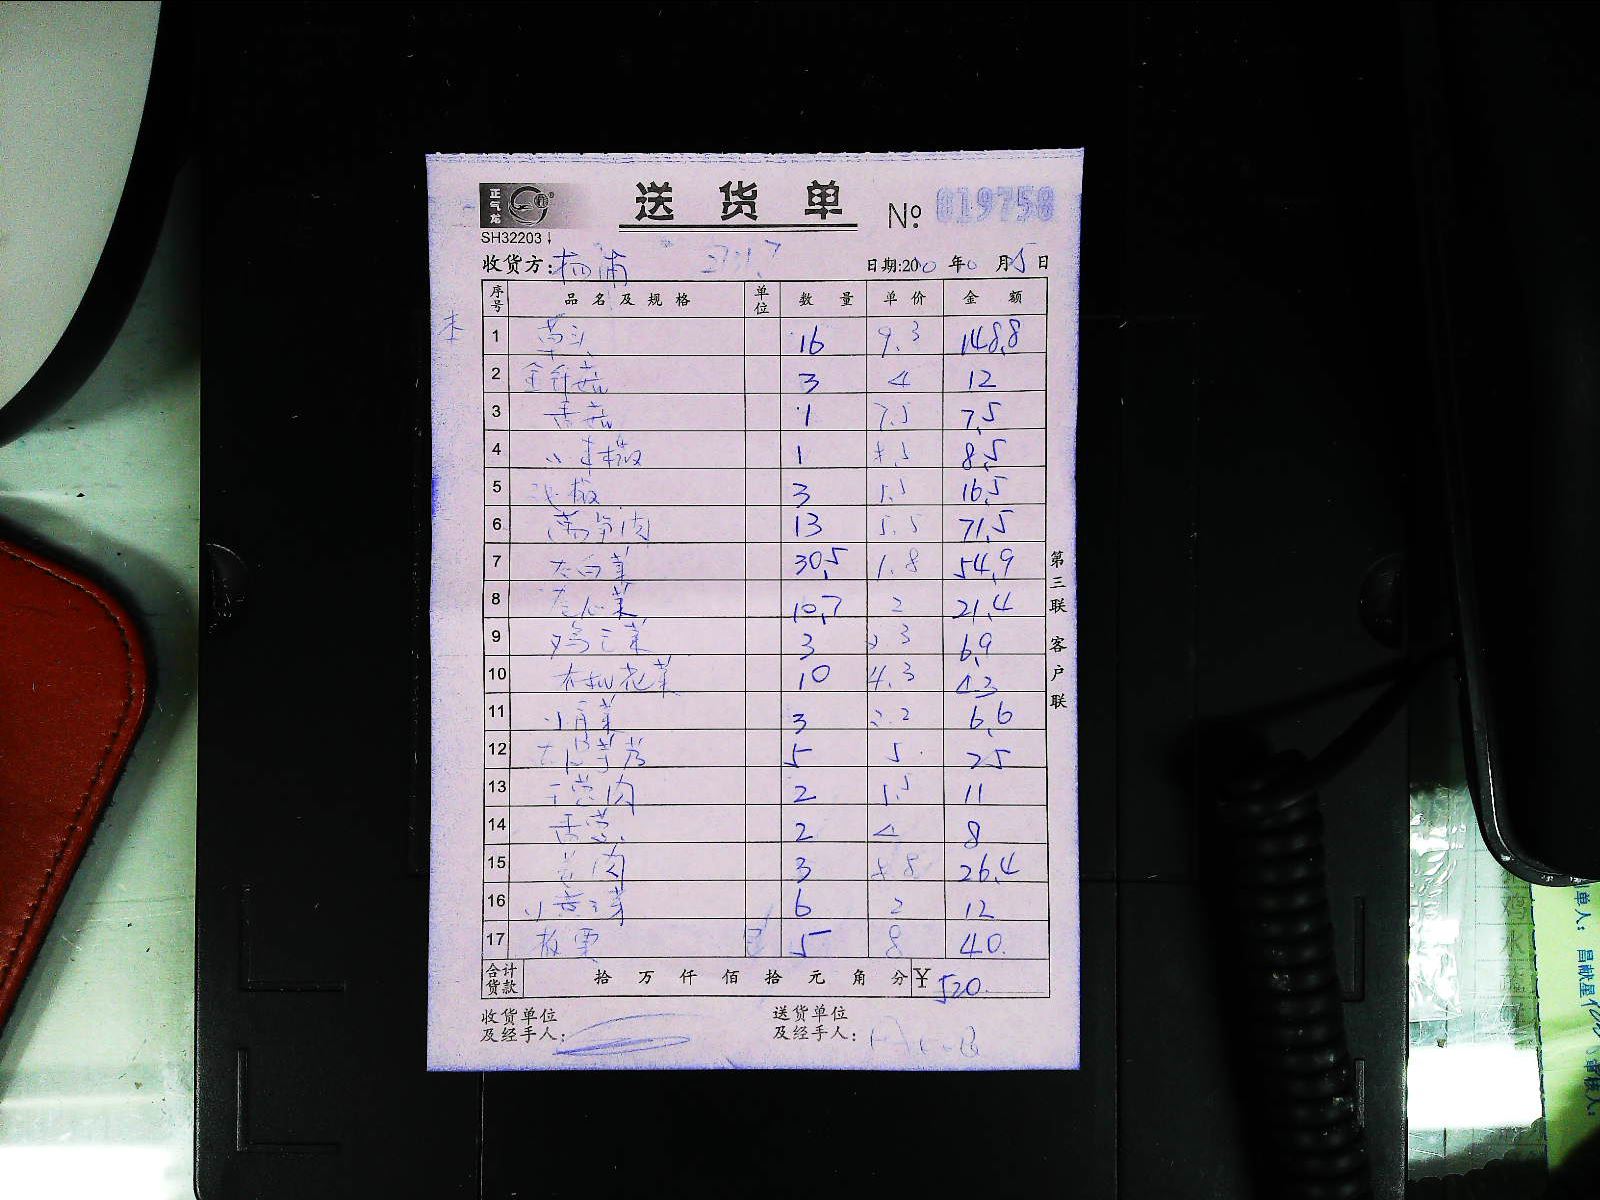 正气龙
送货单 № 019758
SH32203
收货方: 杨浦 日期:20 年 月 5 日
序号 品名及规格 单位 数量 单价 金额
1 16 9.3 148.8
2 金针菇 3 4 12
3 香菇 1 7.5 7.5
4 小米椒 1 8.5
5 3 16.5
6 莴笋肉 13 5.5 71.5
7 大白菜 30.5 1.8 54.9
8 卷心菜 10.7 2 21.4
9 鸡毛菜 3 2.3 6.9
10 有机花菜 10 4.3 43
11 小青菜 3 2.2 6.6
12 5 5 25
13 2 5.5 11
14 2 4 8
15 姜肉 3 8.8 26.4
16 6 2 12
17 板栗 5 8 40.
合计货款 拾 万 仟 佰 拾 元 角 分 ¥ 520.
收货单位及经手人:
送货单位及经手人:
第三联 客户联
单人: 昌献星
审核人:
鸡
水